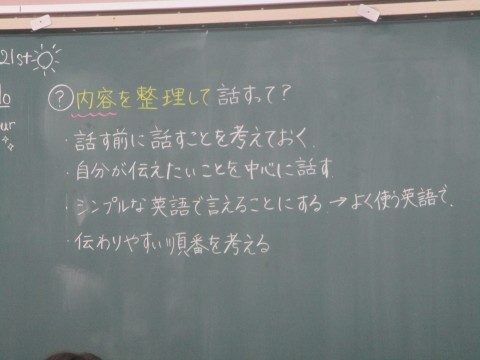 21st
?内容を整理して話すって?
・話す前に話すことを考えておく.
・自分が伝えたいことを中心に話す.
・シンプルな英語で言えることにする. →よく使う英語で.
・伝わりやすい順番を考える